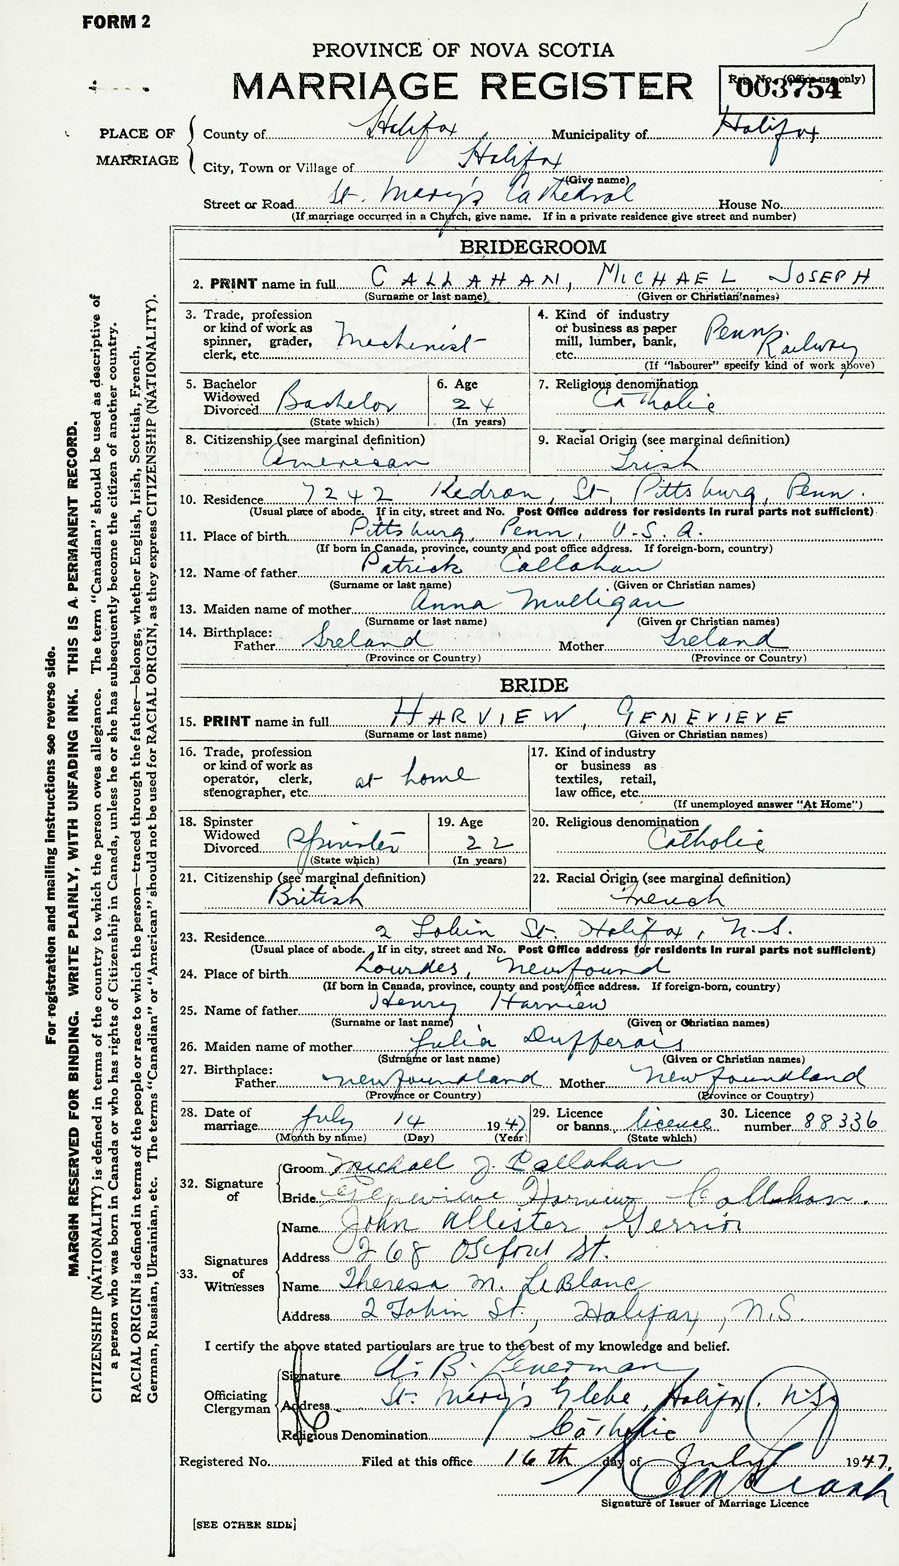 FORM 2
PROVINCE OF NOVA SCOTIA
MARRIAGE REGISTER
Reg. No. (Office use only)
003754
PLACE OF MARRIAGE
County of Halifax Municipality of Halifax
City, Town or Village of Halifax
(Give name)
Street or Road St. Mary's Cathedral House No.
(If marriage occurred in a Church, give name. If in a private residence give street and number)
BRIDEGROOM
2. PRINT name in full CALLAHAN, MICHAEL JOSEPH
(Surname or last name) (Given or Christian names)
3. Trade, profession or kind of work as spinner, grader, clerk, etc. Machinist
4. Kind of industry or business as paper mill, lumber, bank, etc. Penn. Railway
(If "labourer" specify kind of work above)
5. Bachelor Widowed Divorced Bachelor
(State which)
6. Age 24
(In years)
7. Religious denomination Catholic
8. Citizenship (see marginal definition) American
9. Racial Origin (see marginal definition) Irish
10. Residence 7242 Kedron St, Pittsburg, Penn.
(Usual place of abode. If in city, street and No. Post Office address for residents in rural parts not sufficient)
11. Place of birth Pittsburg, Penn, U.S.A.
(If born in Canada, province, county and post office address. If foreign-born, country)
12. Name of father Patrick Callahan
(Surname or last name) (Given or Christian names)
13. Maiden name of mother Anna Mulligan
(Surname or last name) (Given or Christian names)
14. Birthplace: Father Ireland Mother Ireland
(Province or Country) (Province or Country)
BRIDE
15. PRINT name in full HARVIEW, GENEVIEVE
(Surname or last name) (Given or Christian names)
16. Trade, profession or kind of work as operator, clerk, stenographer, etc. at home
17. Kind of industry or business as textiles, retail, law office, etc.
(If unemployed answer "At Home")
18. Spinster Widowed Divorced Spinster
(State which)
19. Age 22
(In years)
20. Religious denomination Catholic
21. Citizenship (see marginal definition) British
22. Racial Origin (see marginal definition) French
23. Residence 2 Tobin St. Halifax, N.S.
(Usual place of abode. If in city, street and No. Post Office address for residents in rural parts not sufficient)
24. Place of birth Lourdes, Newfound
(If born in Canada, province, county and post office address. If foreign-born, country)
25. Name of father Henry Harview
(Surname or last name) (Given or Christian names)
26. Maiden name of mother Julia Dufferais
(Surname or last name) (Given or Christian names)
27. Birthplace: Father Newfoundland Mother Newfoundland
(Province or Country) (Province or Country)
28. Date of marriage July 14 1947
(Month by name) (Day) (Year)
29. Licence or banns licence
(State which)
30. Licence number 88336
32. Signature of
Groom Michael J. Callahan
Bride Genevieve Harview Callahan.
33. Signatures of Witnesses
Name John Allister Gerrior
Address 268 Oxford St.
Name Theresa M. LeBlanc
Address 2 Tobin St., Halifax, N.S.
I certify the above stated particulars are true to the best of my knowledge and belief.
Officiating Clergyman
Signature A. B.
Address St. Mary's Glebe, Halifax, N.S.
Religious Denomination Catholic
Registered No. Filed at this office 16th day of July 1947.
Signature of Issuer of Marriage Licence
[SEE OTHER SIDE]
For registration and mailing instructions see reverse side.
MARGIN RESERVED FOR BINDING. WRITE PLAINLY, WITH UNFADING INK. THIS IS A PERMANENT RECORD.
CITIZENSHIP (NATIONALITY) is defined in terms of the country to which the person owes allegiance. The term "Canadian" should be used as descriptive of
a person who was born in Canada or who has rights of Citizenship in Canada, unless he or she has subsequently become the citizen of another country.
RACIAL ORIGIN is defined in terms of the people or race to which the person—traced through the father—belongs, whether English, Irish, Scottish, French,
German, Russian, Ukrainian, etc. The terms "Canadian" or "American" should not be used for RACIAL ORIGIN, as they express CITIZENSHIP (NATIONALITY).